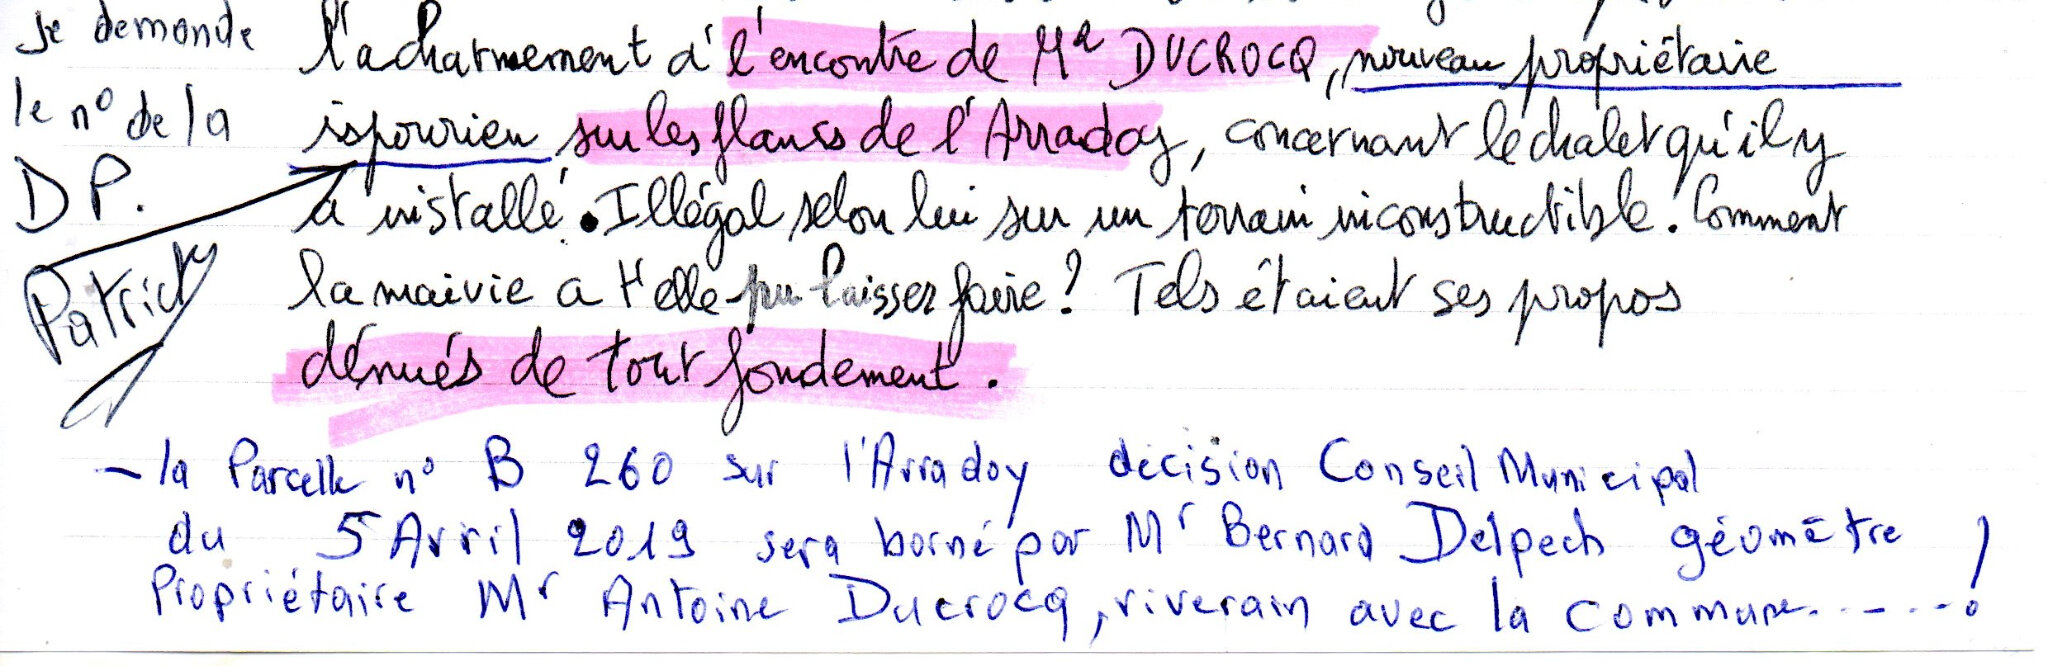 je demande
le n° de la
DP.
Patrick
l'acharnement à l'encontre de Mr DUCROCQ, nouveau propriétaire
ispourien sur les flancs de l'Arradoy, concernant le chalet qu'il y
a installé. Illégal selon lui sur un terrain inconstructible. Comment
la mairie a t'elle pu laisser faire? Tels étaient ses propos
dénués de tout fondement.
- la Parcelle n° B 260 sur l'Arradoy décision Conseil Municipal
du 5 Avril 2019 sera borné par Mr Bernard Delpech géomètre
Propriétaire Mr Antoine Ducrocq, riverain avec la commune......!